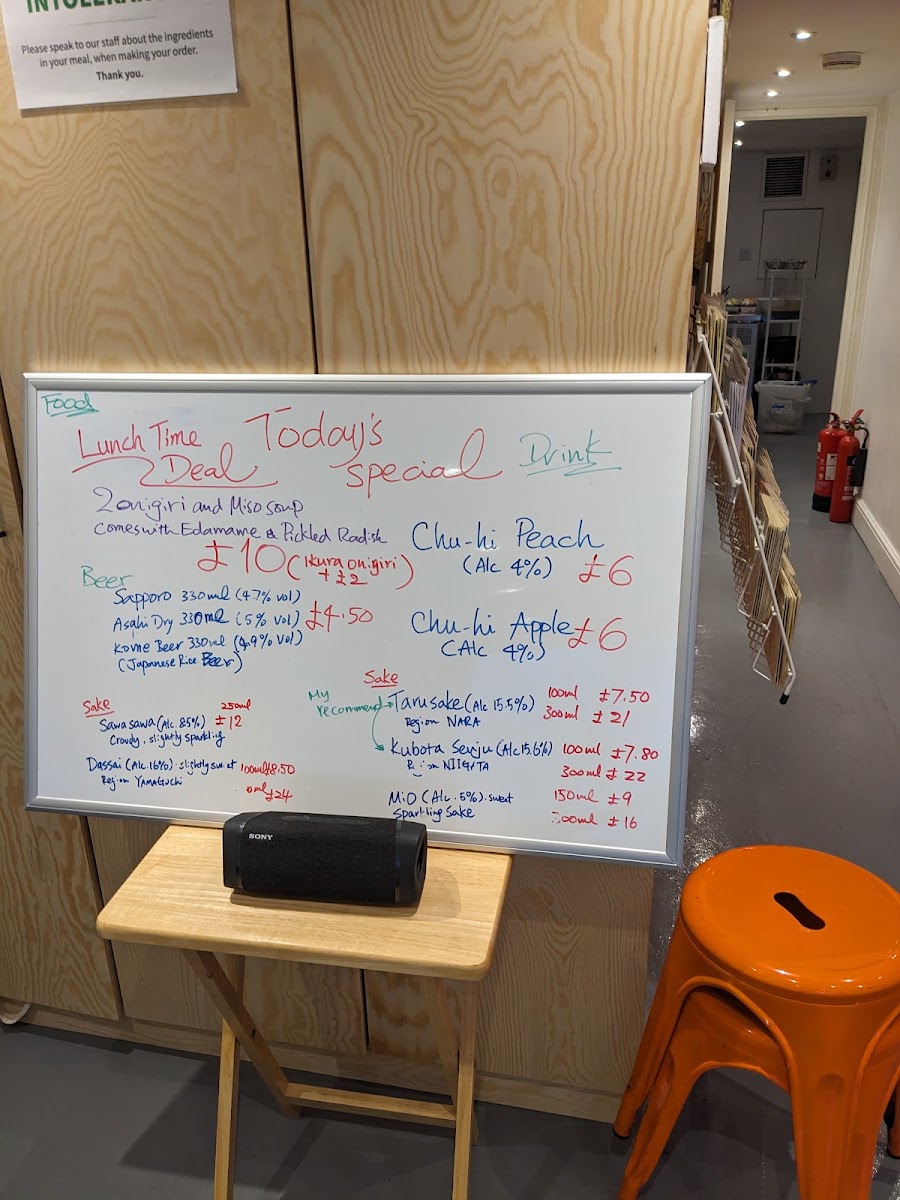 Please speak to our staff about the ingredients
in your meal, when making your order.
Thank you.
Food
Lunch Time
Deal
Today's
special
Drink
2 onigiri and Miso soup
comes with Edamame & Pickled Radish
£10 (Ikura onigiri
+ £2)
Beer
Sapporo 330ml (4.7% vol)
Asahi Dry 330ml (5% vol) £4.50
Kome Beer 330ml (4.9% vol)
(Japanese Rice Beer)
Chu-hi Peach
(Alc 4%) £6
Chu-hi Apple £6
(Alc 4%)
Sake
Sawasawa (Alc. 8.5%) 250ml £12
Croudy, slightly sparkling
Dassai (Alc. 16%). slightly sweet 100ml £8.50
Region YAMAGUCHI
0ml £24
Sake
My
recommend
Tarusake (Alc 15.5%) 100ml £7.50
Region NARA 300ml £21
Kubota Senju (Alc 15.6%) 100ml £7.80
NIIGATA 300ml £22
MiO (Alc. 5%). sweet 150ml £9
Sparkling Sake 00ml £16
SONY